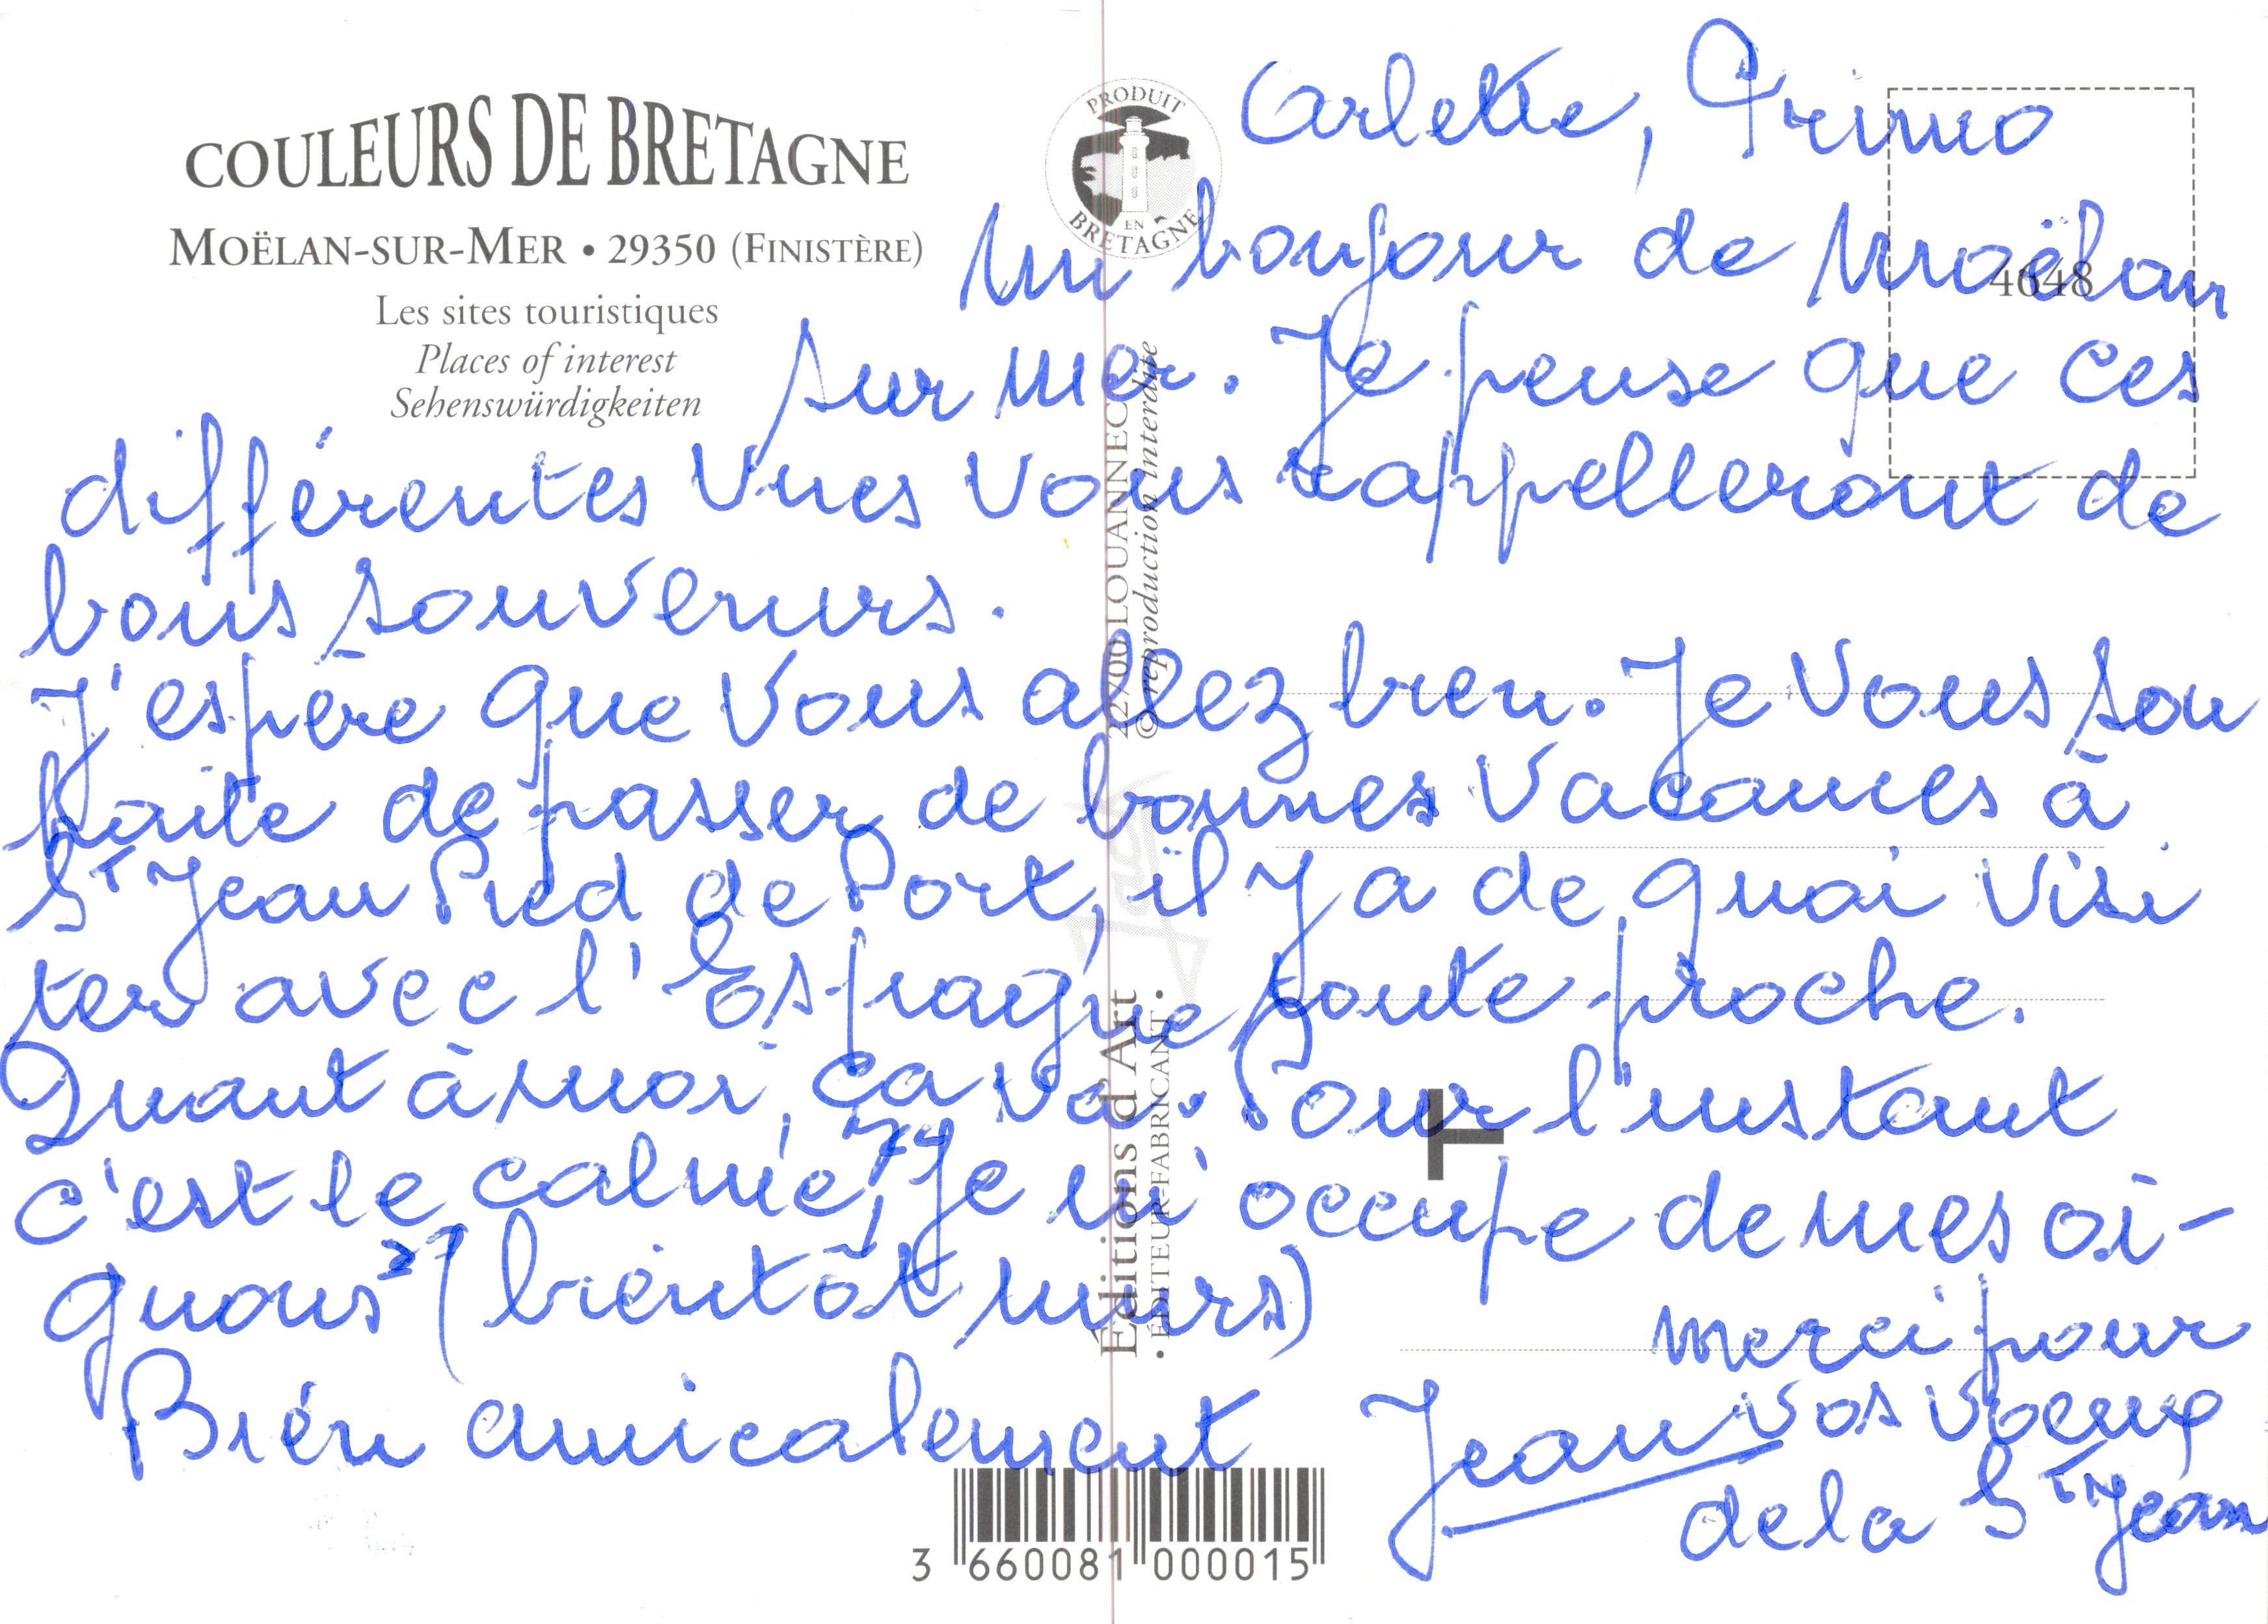 COULEURS DE BRETAGNE
MOËLAN-SUR-MER • 29350 (FINISTÈRE)
Les sites touristiques
Places of interest
Sehenswürdigkeiten
PRODUIT
EN
BRETAGNE
4648
Carlette, Primo
Un bonjour de Moëlan
sur mer. Je pense que ces
différentes vues vous rappelleront de
bons souvenirs.
J'espère que vous allez bien. Je vous sou
haite de passer de bonnes vacances à
St Jean Pied de Port, il y a de quoi visi
ter avec l'Espagne toute proche.
Quant à moi, ça va. Pour l'instant
c'est le calme, je m'occupe de mes oi-
gnons (bientôt mûrs)
Bien amicalement
Jean
merci pour
vos voeux
de la St Jean
22700 LOUANNEC
© reproduction interdite
Éditions d'Art
• ÉDITEUR-FABRICANT •
3 660081 000015